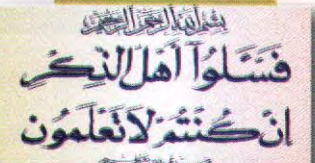 بِسْمِ اللَّهِ الرَّحْمَنِ الرَّحِيمِ
فَسْـَٔلُوٓا۟ أَهْلَ الذِّكْرِ
إِنْ كُنْتُمْ لَا تَعْلَمُونَ